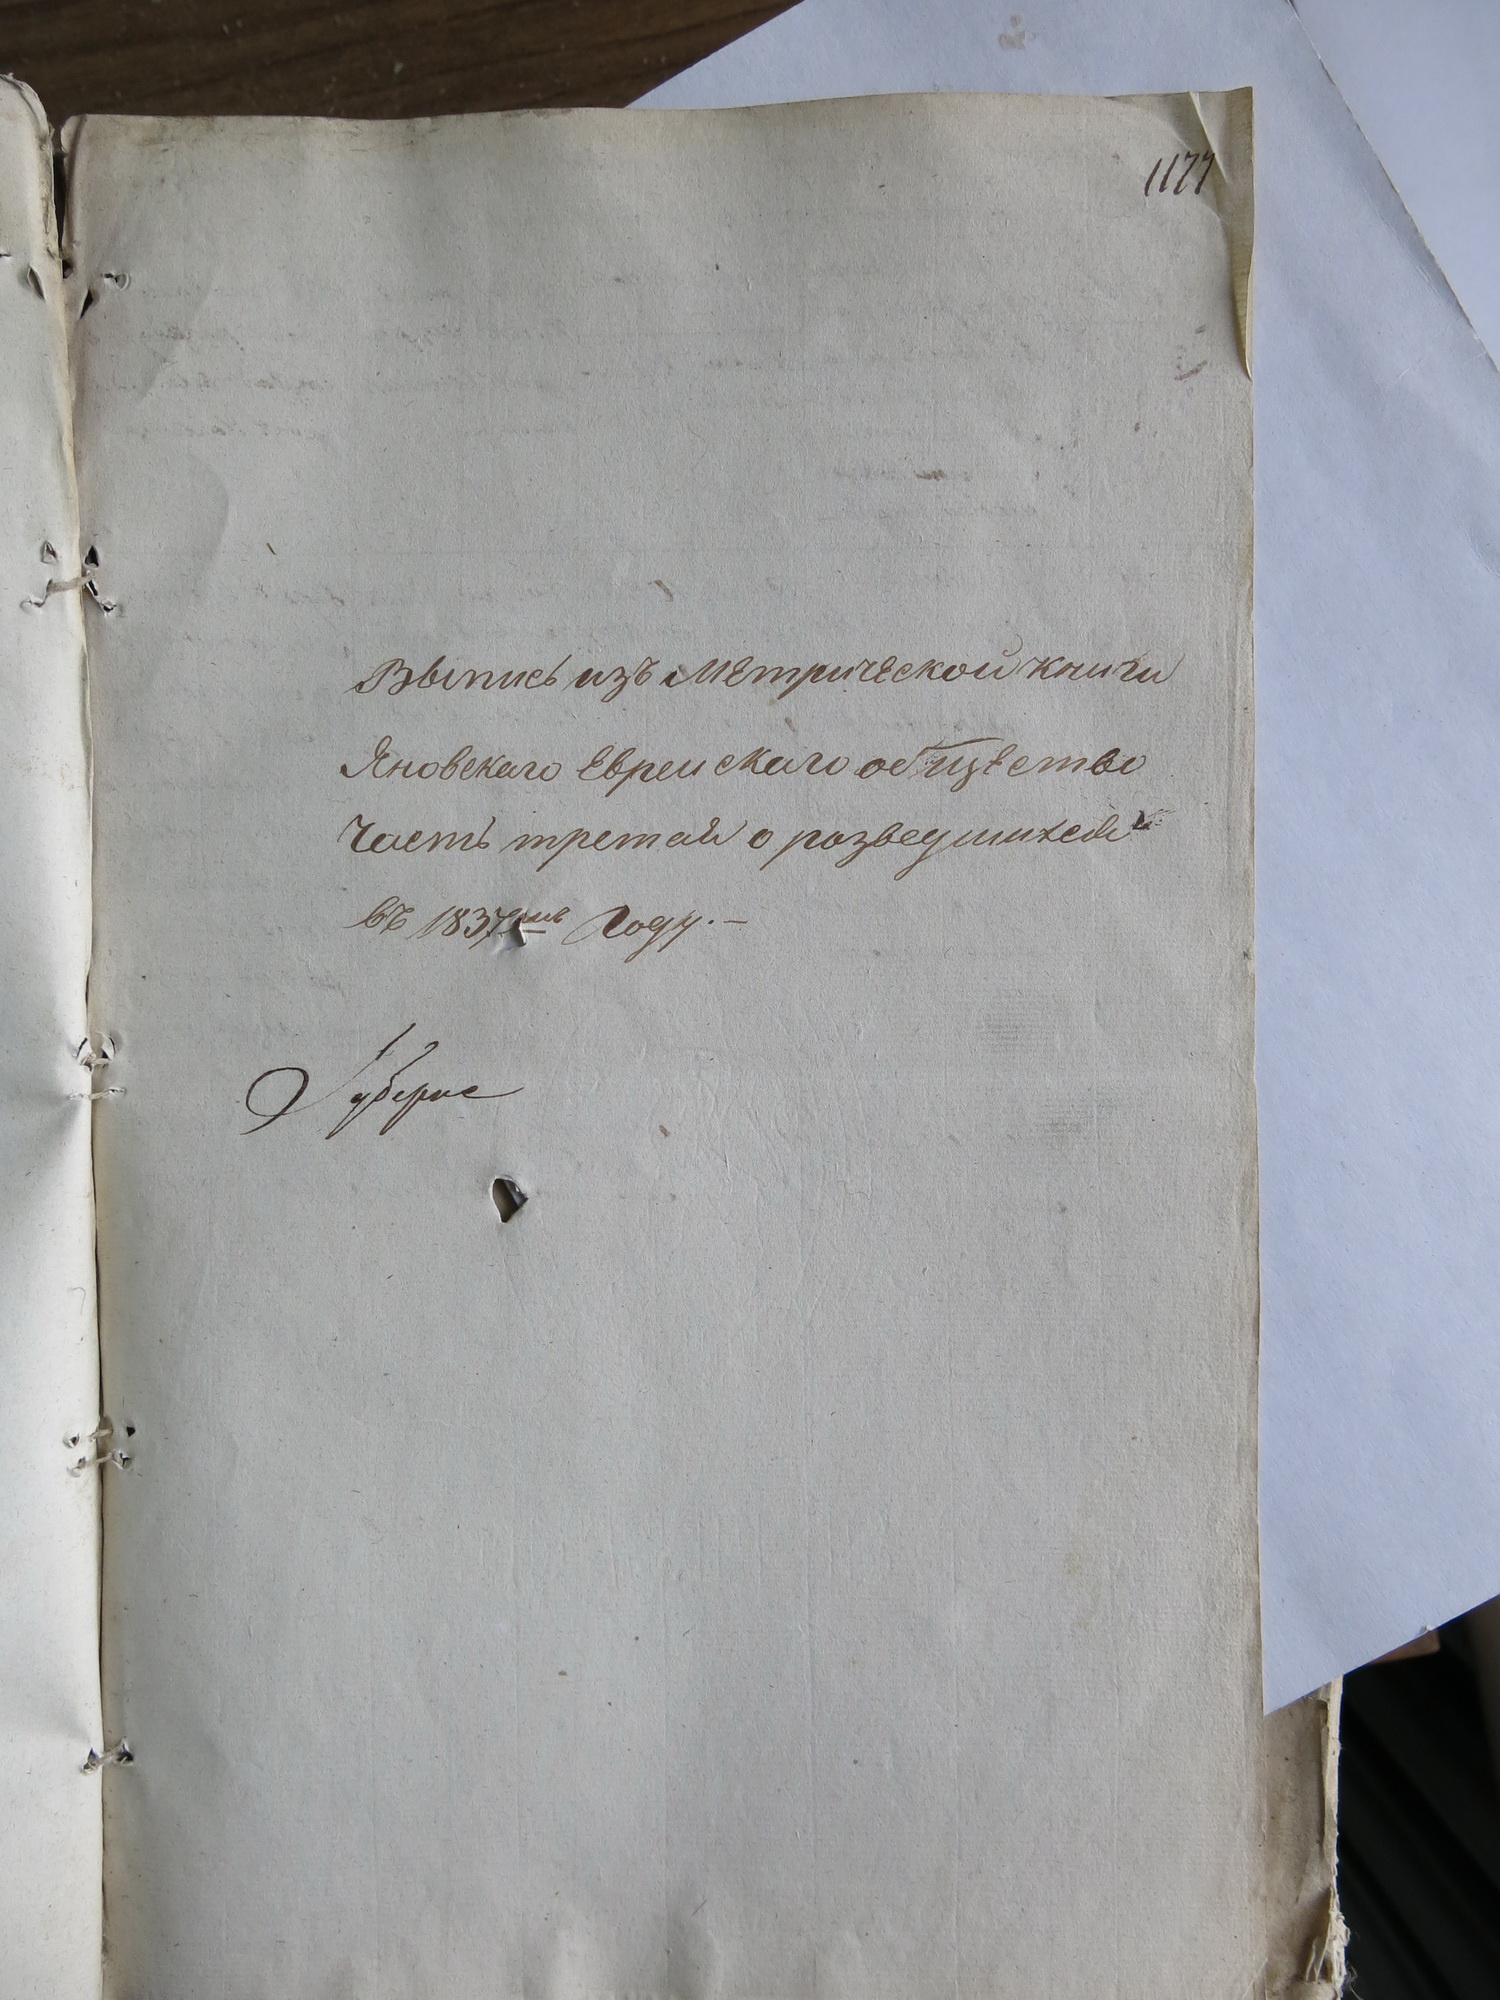 1177
Выпись изъ Метрической книги
Яновскаго Еврейскаго общество
Часть третай о розведшихся
въ 1837мъ Году.—
Губерне